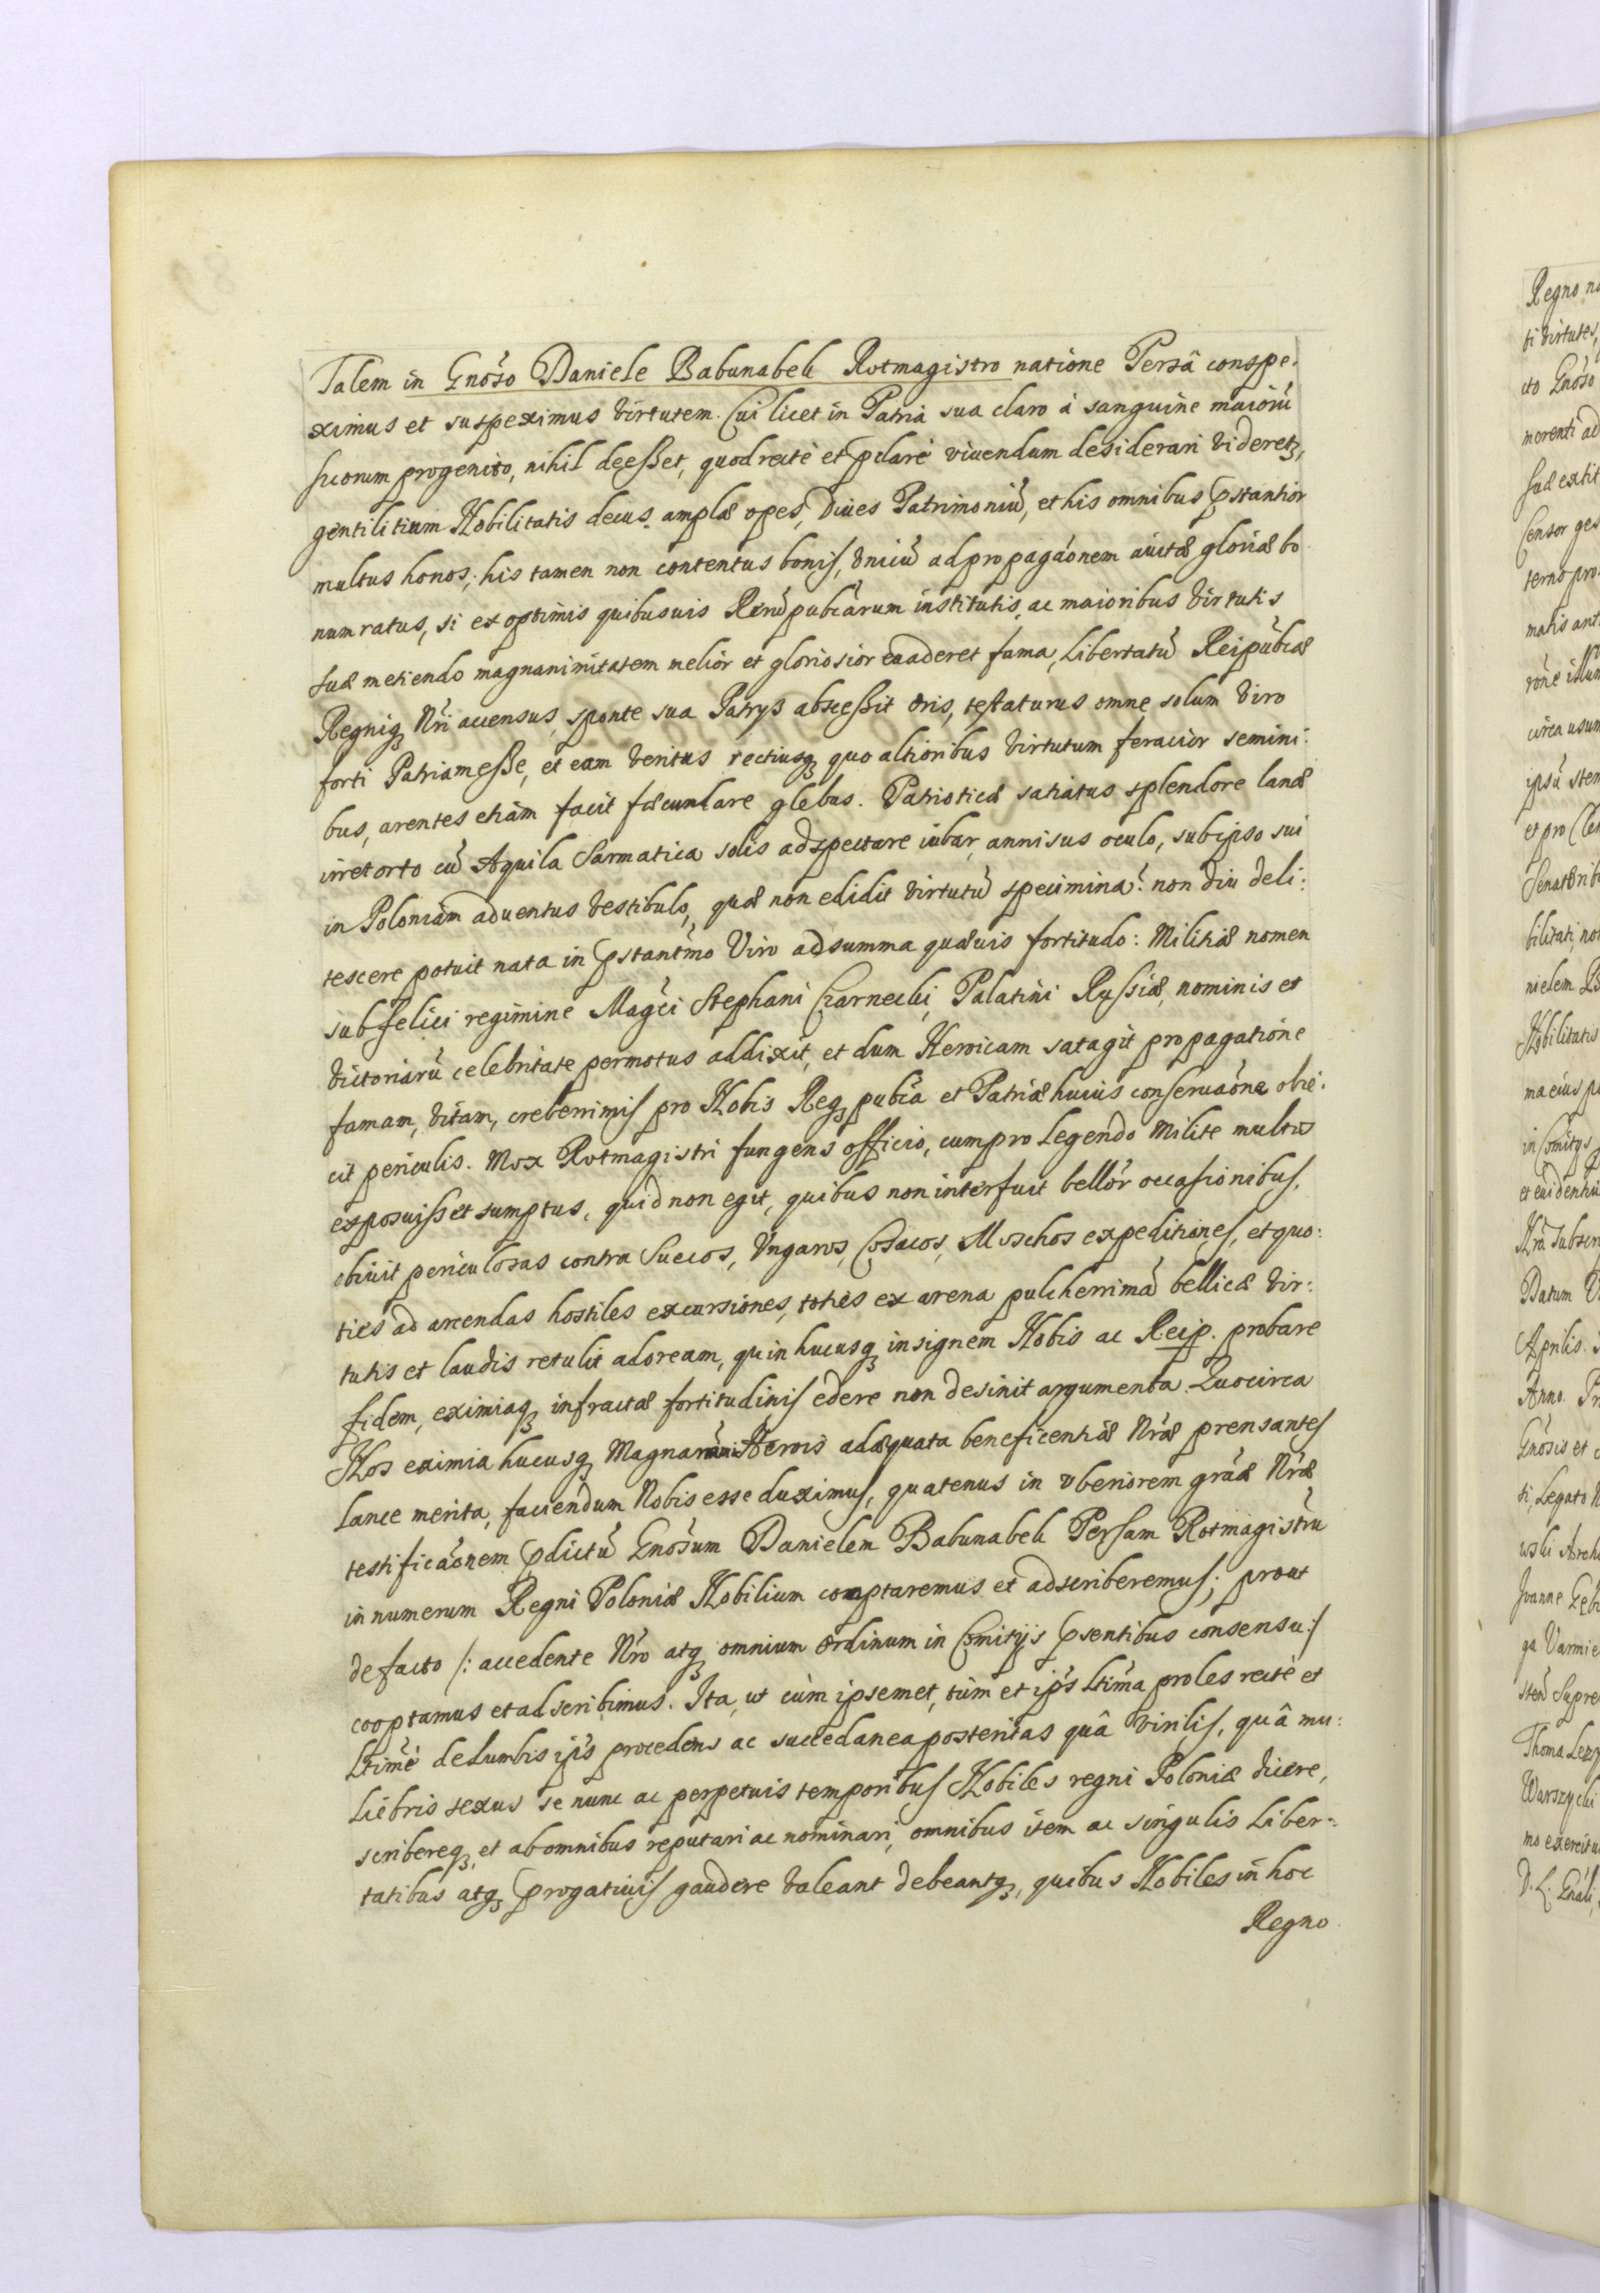 Talem in Gnoso Daniele Babunabek Rotmagistro natione Persâ conspe-
ximus et suspeximus virtutem. Cui licet in Patria sua claro à sanguine maioru
suorum progenito, nihil deesset, quod rectè et pclarè viuendum desiderari videretq,
gentilitium Nobilitatis decus, amplæ opes, diues Patrimoniu, et his omnibus pstantior
multus honos, his tamen non contentus bonis, vnicu ad propagaonem auitæ gloriæ bo
num ratus, si ex optimis quibusuis Reru pubcarum institutis, ac maioribus virtutis
suæ metiendo magnanimitatem melior et gloriosior euaderet fama, Libertatu Reipubcæ
Regniq Nri accensus, sponte sua Patrys abscessit oris, testaturus omne solum viro
forti Patriam esse, et eam veritus rectiusq quo altioribus virtutum feracior semini:
bus, arentes etiam facit fæcundare glebas. Patrioticæ satiatus splendore lanæ
irretorto cu Aquila Sarmatica solis adspectare iubar, annisus oculo, sub ipso sui
in Poloniam aduentus vestibulo, quæ non edidit virtutu specimina? non diu deli:
tescere potuit nata in pstantmo Viro ad summa quæuis fortitudo: Militiæ nomen
sub felici regimine Magci Stephani Czarnecki, Palatini Russiæ, nominis et
victoriaru celebritate permotus addixit, et dum Heroicam satagit propagatione
famam, vitam, creberrimis pro Nobis Reqpubca et Patriæ huius conseruaone obie:
cit periculis. Mox Rotmagistri fungens officio, cum pro Legendo Milite multos
exposuisset sumptus, quid non egit, quibus non interfuit bellor occasionibus,
obiuit periculosas contra Suecos, Vngaros, Cosacos, Moschos expeditiones, et quo:
ties ad arcendas hostiles excursiones, toties ex arena pulcherrima bellicæ vir:
tutis et laudis retulit adoream, quin hucusq insignem Nobis ac Reip. probare
fidem, eximiaq infractæ fortitudinis edere non desinit argumenta. Quocirca
Nos eximia hucusq Magnanimi Herois adæquata beneficentiæ Nræ prensantes
Lance merita, faciendum Nobis esse duximus, quatenus in vberiorem graæ Nræ
testificaonem pdictu Gnosum Danielem Babunabek Persam Rotmagistru
in numerum Regni Poloniæ Nobilium cooptaremus et adscriberemus; prout
de facto /: accedente Nro atq omnium Ordinum in Comitijs psentibus consensu :/
cooptamus et adscribimus. Ita, ut cùm ipsemet, tùm et ips Ltima proles rectè et
Ltimè de Lumbis ips procedens ac succedanea posteritas quâ virilis, quâ mu:
liebris sexus se nunc ac perpetuis temporibus Nobiles regni Poloniæ dicere,
scribereq, et ab omnibus reputari ac nominari, omnibus item ac singulis Liber:
tatibus atq progatiuis gaudere valeant debeantq, quibus Nobiles in hoc
Regno